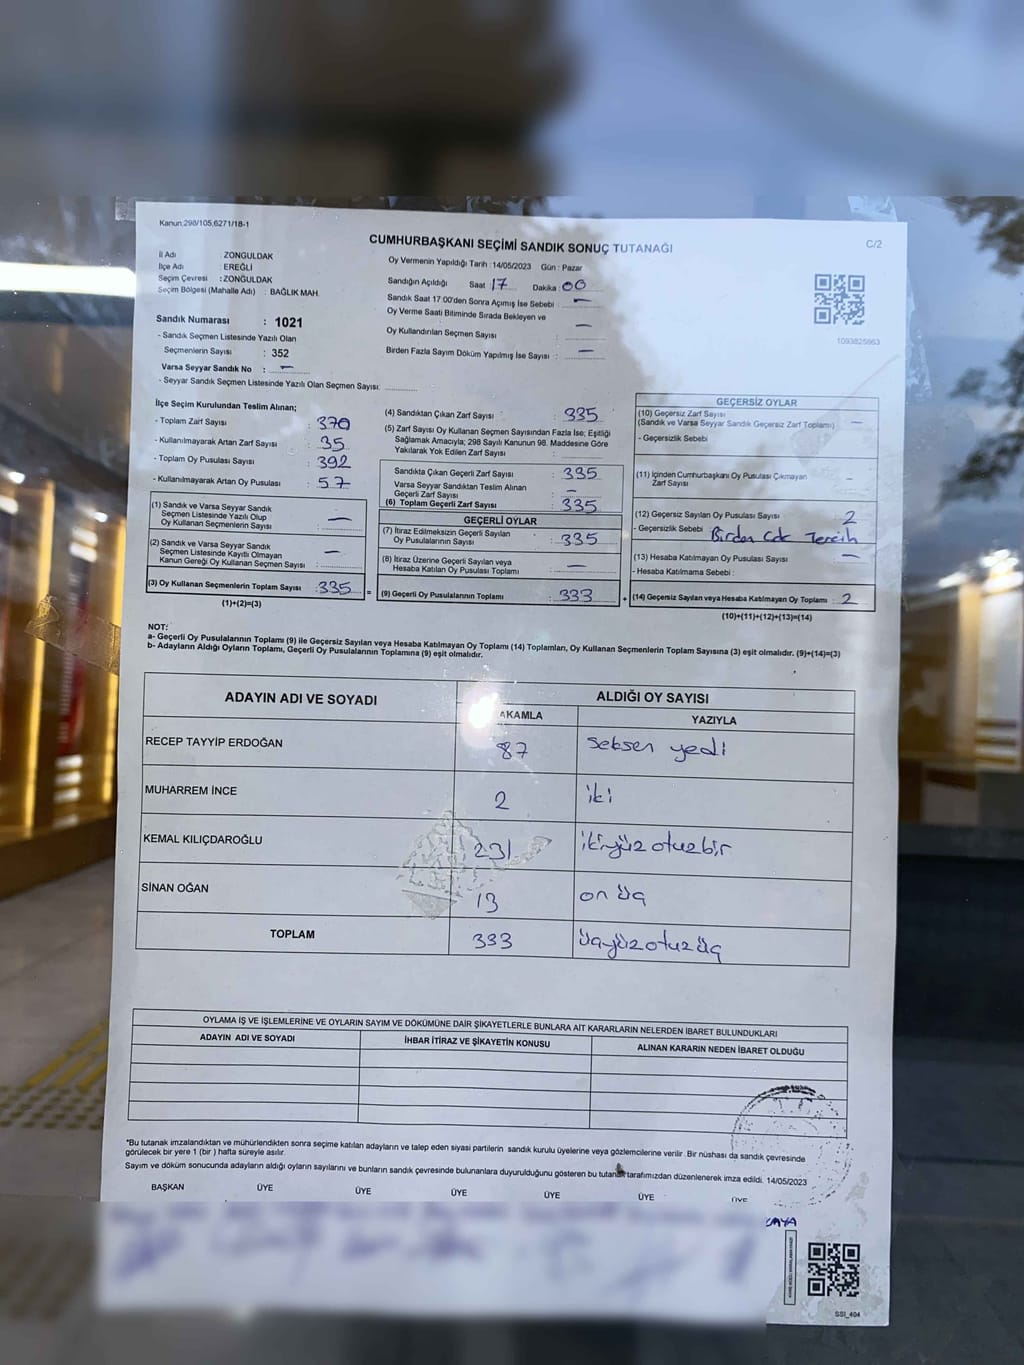 Kanun 298/105,6271/18-1
CUMHURBAŞKANI SEÇİMİ SANDIK SONUÇ TUTANAĞI
C/2
İl Adı ZONGULDAK
İlçe Adı : EREĞLİ
Seçim Çevresi : ZONGULDAK
Seçim Bölgesi (Mahalle Adı) : BAĞLIK MAH.
Oy Vermenin Yapıldığı Tarih : 14/05/2023 Gün : Pazar
Sandığın Açıldığı Saat 17 Dakika : 00
Sandık Saat 17:00'den Sonra Açımış İse Sebebi : —
Oy Verme Saati Bitiminde Sırada Bekleyen ve
Oy Kullandırılan Seçmen Sayısı : —
Birden Fazla Sayım Döküm Yapılmış İse Sayısı : —
1093825663
Sandık Numarası : 1021
- Sandık Seçmen Listesinde Yazılı Olan
Seçmenlerin Sayısı : 352
Varsa Seyyar Sandık No : —
- Seyyar Sandık Seçmen Listesinde Yazılı Olan Seçmen Sayısı:
İlçe Seçim Kurulundan Teslim Alınan;
- Toplam Zarf Sayısı : 370
- Kullanılmayarak Artan Zarf Sayısı : 35
- Toplam Oy Pusulası Sayısı : 392
- Kullanılmayarak Artan Oy Pusulası : 57
(1) Sandık ve Varsa Seyyar Sandık
Seçmen Listesinde Yazılı Olup
Oy Kullanan Seçmenlerin Sayısı : —
(2) Sandık ve Varsa Seyyar Sandık
Seçmen Listesinde Kayıtlı Olmayan
Kanun Gereği Oy Kullanan Seçmen Sayısı : —
(3) Oy Kullanan Seçmenlerin Toplam Sayısı : 335
(1)+(2)=(3)
(4) Sandıktan Çıkan Zarf Sayısı : 335
(5) Zarf Sayısı Oy Kullanan Seçmen Sayısından Fazla İse; Eşitliği
Sağlamak Amacıyla; 298 Sayılı Kanunun 98. Maddesine Göre
Yakılarak Yok Edilen Zarf Sayısı :
Sandıkta Çıkan Geçerli Zarf Sayısı : 335
Varsa Seyyar Sandıktan Teslim Alınan
Geçerli Zarf Sayısı : —
(6) Toplam Geçerli Zarf Sayısı : 335
GEÇERLİ OYLAR
(7) İtiraz Edilmeksizin Geçerli Sayılan
Oy Pusulalarının Sayısı : 335
(8) İtiraz Üzerine Geçerli Sayılan veya
Hesaba Katılan Oy Pusulası Toplamı : —
(9) Geçerli Oy Pusulalarının Toplamı : 333
GEÇERSİZ OYLAR
(10) Geçersiz Zarf Sayısı
(Sandık ve Varsa Seyyar Sandık Geçersiz Zarf Toplamı) : —
- Geçersizlik Sebebi
(11) İçinden Cumhurbaşkanı Oy Pusulası Çıkmayan
Zarf Sayısı —
(12) Geçersiz Sayılan Oy Pusulası Sayısı : 2
- Geçersizlik Sebebi Birden Cok Tercih
(13) Hesaba Katılmayan Oy Pusulası Sayısı : —
- Hesaba Katılmama Sebebi :
(14) Geçersiz Sayılan veya Hesaba Katılmayan Oy Toplamı : 2
(10)+(11)+(12)+(13)=(14)
NOT:
a- Geçerli Oy Pusulalarının Toplamı (9) ile Geçersiz Sayılan veya Hesaba Katılmayan Oy Toplamı (14) Toplamları, Oy Kullanan Seçmenlerin Toplam Sayısına (3) eşit olmalıdır. (9)+(14)=(3)
b- Adayların Aldığı Oyların Toplamı, Geçerli Oy Pusulalarının Toplamına (9) eşit olmalıdır.
ADAYIN ADI VE SOYADI
ALDIĞI OY SAYISI
AKAMLA YAZIYLA
RECEP TAYYİP ERDOĞAN 87 seksen yedi
MUHARREM İNCE 2 iki
KEMAL KILIÇDAROĞLU 231 ikiyüz otuzbir
SİNAN OĞAN 13 on üç
TOPLAM 333 üçyüzotuzüç
OYLAMA İŞ VE İŞLEMLERİNE VE OYLARIN SAYIM VE DÖKÜMÜNE DAİR ŞİKAYETLERLE BUNLARA AİT KARARLARIN NELERDEN İBARET BULUNDUKLARI
ADAYIN ADI VE SOYADI İHBAR İTİRAZ VE ŞİKAYETİN KONUSU ALINAN KARARIN NEDEN İBARET OLDUĞU
*Bu tutanak imzalandıktan ve mühürlendikten sonra seçime katılan adayların ve talep eden siyasi partilerin sandık kurulu üyelerine veya gözlemcilerine verilir. Bir nüshası da sandık çevresinde
görülecek bir yere 1 (bir) hafta süreyle asılır.
Sayım ve döküm sonucunda adayların aldığı oyların sayılarını ve bunların sandık çevresinde bulunanlara duyurulduğunu gösteren bu tutanak tarafımızdan düzenlenerek imza edildi. 14/05/2023
BAŞKAN ÜYE ÜYE ÜYE ÜYE ÜYE ÜYE
SSI_404